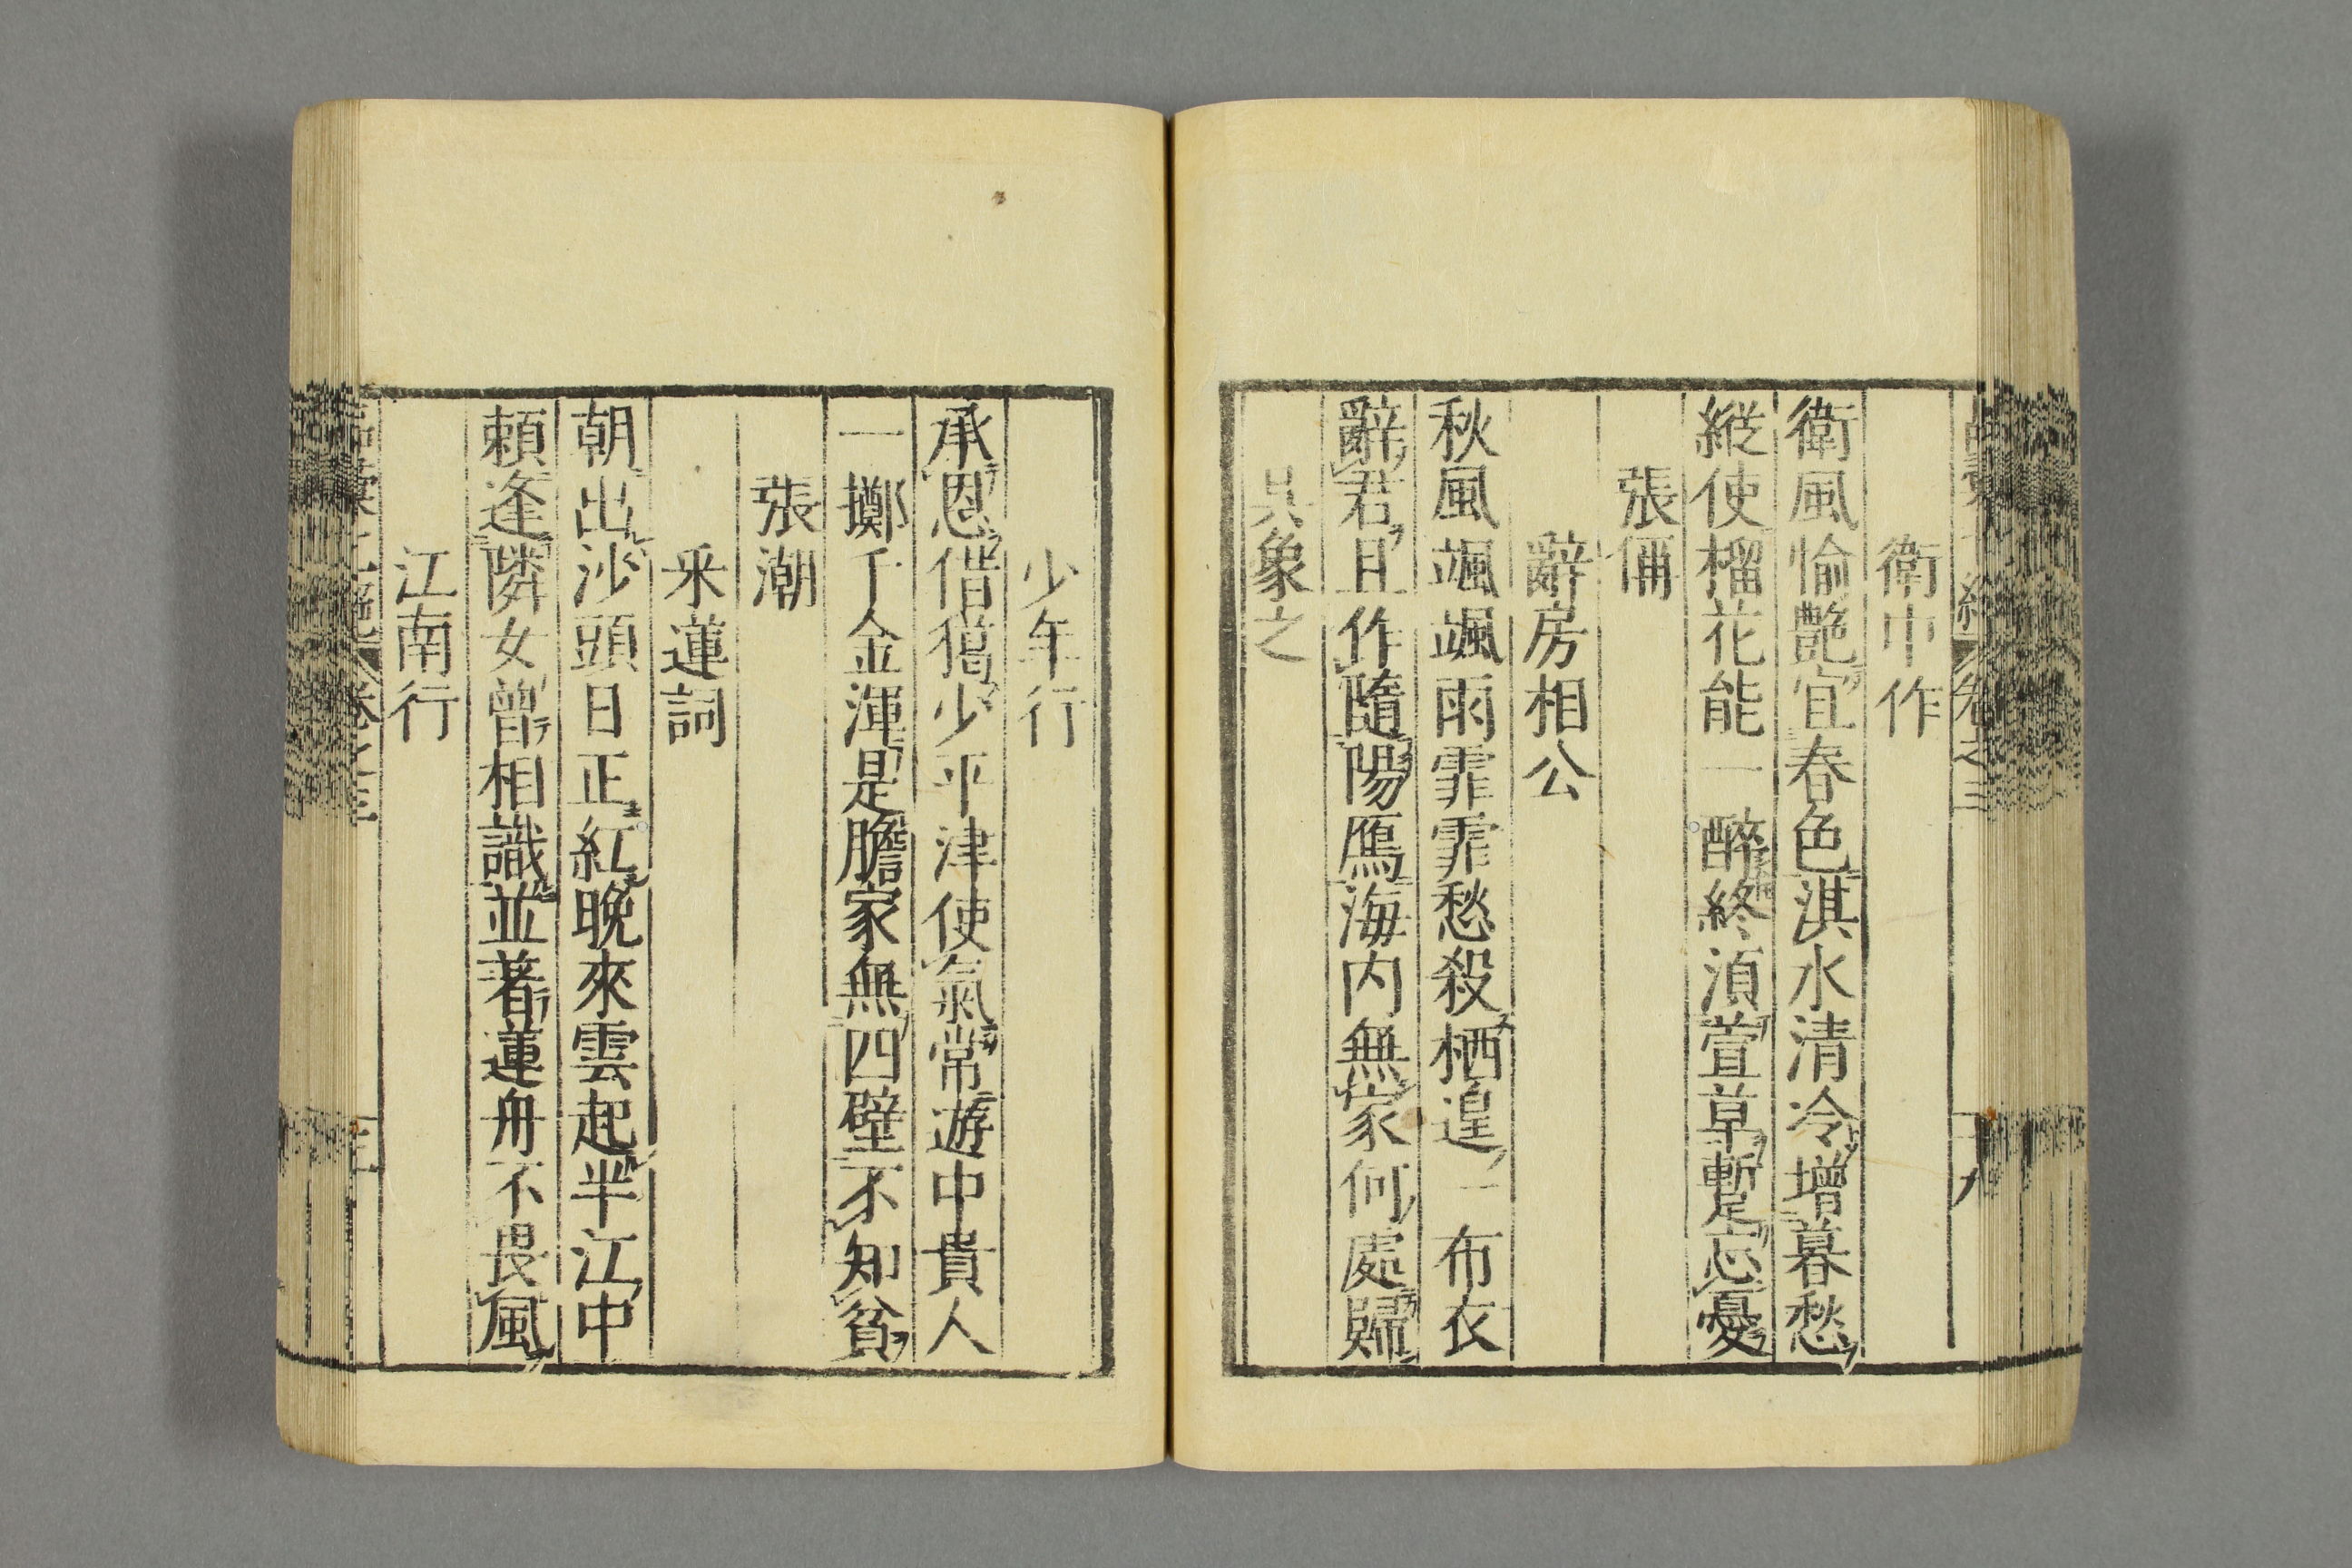 衛中作
衛風愉艷宜春色淇水清冷增暮愁
縱使榴花能一醉終須萱草暫忘憂
張俌
辭房相公
秋風颯颯雨霏霏愁殺栖遑一布衣
辭君且作隨陽鴈海内無家何處歸
吳象之
少年行
承恩借獵少平津使氣常遊中貴人
一擲千金渾是膽家無四壁不知貧
張潮
釆蓮詞
朝出沙頭日正紅晚來雲起半江中
賴逢隣女曾相識並著蓮舟不畏風
江南行